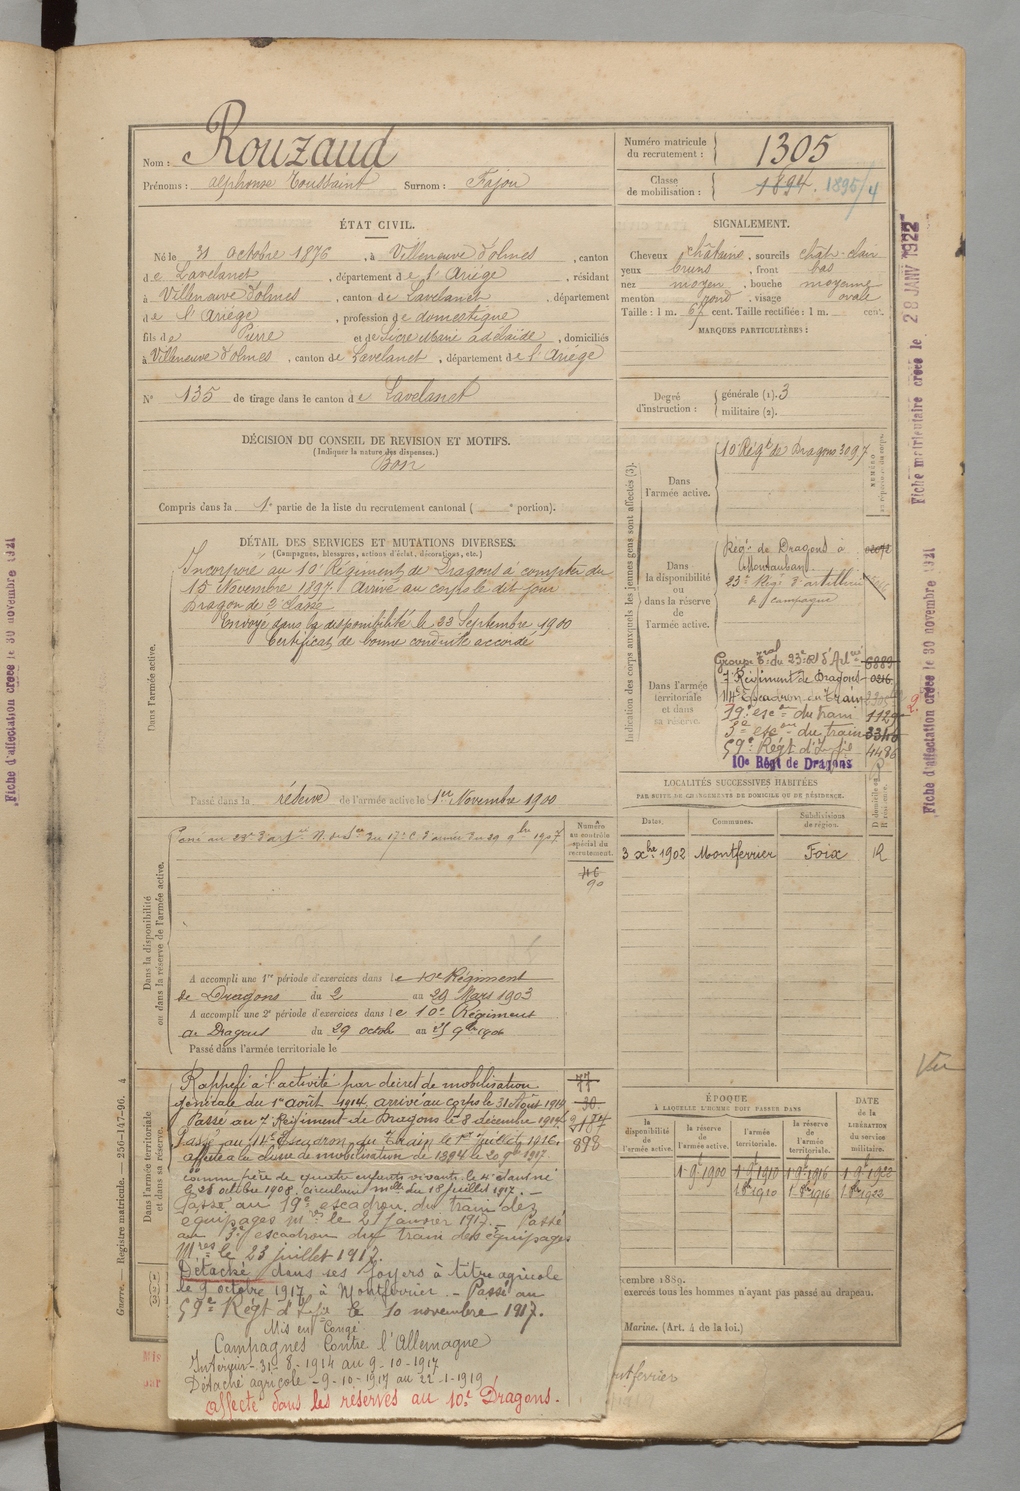 Nom : Rouzaud
Prénoms : Alphonse Toussaint Surnom : Fajou
Numéro matricule du recrutement : 1305
Classe de mobilisation : 1894. 1895/4
ÉTAT CIVIL.
Né le 31 octobre 1876, à Villeneuve d'olmes, canton
de Lavelanet, département de l'Ariège, résidant
à Villeneuve d'olmes, canton de Lavelanet, département
de l'Ariège, profession de domestique
fils de Pierre et de Sicre Marie Adélaïde, domiciliés
à Villeneuve d'olmes, canton de Lavelanet, département de l'Ariège
N° 135 de tirage dans le canton de Lavelanet
SIGNALEMENT.
Cheveux châtains, sourcils chât-clair
yeux bruns, front bas
nez moyen, bouche moyenne
menton rond, visage ovale
Taille : 1 m. 67 cent. Taille rectifiée : 1 m. cent.
MARQUES PARTICULIÈRES :
Degré d'instruction : générale (1). 3
militaire (2).
DÉCISION DU CONSEIL DE REVISION ET MOTIFS.
(Indiquer la nature des dispenses.)
Bon
Compris dans la 1e partie de la liste du recrutement cantonal ( e portion).
DÉTAIL DES SERVICES ET MUTATIONS DIVERSES.
(Campagnes, blessures, actions d'éclat, décorations, etc.)
Dans l'armée active.
Incorporé au 10e Régiment de Dragons à compter du
15 Novembre 1897. Arrivé au corps le dit jour
Dragon de 2e classe
Envoyé dans la disponibilité le 23 Septembre 1900
Certificat de bonne conduite accordé
Passé dans la réserve de l'armée active le 1er Novembre 1900
Indication des corps auxquels les jeunes gens sont affectés (3).
NUMÉRO
Dans l'armée active.
10e Régt de Dragons 3097
Dans la disponibilité ou dans la réserve de l'armée active.
Régt de Dragons à
Montauban
23e Régt d'artillerie
de campagne
Dans l'armée territoriale et dans sa réserve.
Groupe Tral du 23e Rt d'Arie 6889
7e Régiment de Dragons 0216
14e Escadron du Train
19e escon du train 1129
3e escon du train 3348
59e Régt d'Infie 4486
10e Régt de Dragons
LOCALITÉS SUCCESSIVES HABITÉES
PAR SUITE DE CHANGEMENTS DE DOMICILE OU DE RÉSIDENCE.
Dates. Communes. Subdivisions de région. D domicile ou R résidence.
3 xbre 1902 Montferrier Foix R
Dans la disponibilité ou dans la réserve de l'armée active.
Numéro au contrôle spécial du recrutement.
46
90
A accompli une 1re période d'exercices dans le 10e Régiment
de Dragons du 2 au 29 Mars 1903
A accompli une 2e période d'exercices dans le 10e Régiment
de Dragons du 29 octobre au 25 9bre 1906
Passé dans l'armée territoriale le
Dans l'armée territoriale et dans sa réserve.
Rappelé à l'activité par décret de mobilisation
générale du 1er août 1914, arrivé au corps le 31 août 1914
Passé au 7e Régiment de Dragons le 8 décembre 1914
Passé au 14e Escadron du Train le 1er juillet 1916.
affecté à la classe de mobilisation de 1894 le 20 9bre 1917
77
30
2187
898
comme père de quatre enfants vivants le 4e étant né
le 26 octobre 1908, circulaire mlle du 18 juillet 1917. —
Passé au 19e escadron du train des
équipages mres le 21 janvier 1917. — Passé
au 3e escadron du train des équipages
Mres le 23 juillet 1917.
Détaché dans ses foyers à titre agricole
le 9 octobre 1917 à Montferrier. — Passé au
59e Régt d'Infie le 10 novembre 1917.
Mis en congé
Campagnes contre l'Allemagne
Intérieur - 31 - 8 - 1914 au 9 - 10 - 1917
Détaché agricole - 9 - 10 - 1917 au 22 - 1 - 1919
affecté dans les réserves au 10e Dragons.
ÉPOQUE
À LAQUELLE L'HOMME DOIT PASSER DANS
DATE de la LIBÉRATION du service militaire.
la disponibilité de l'armée active. la réserve de l'armée active. l'armée territoriale. la réserve de l'armée territoriale.
1 9e 1900 1 9e 1910 1 9e 1916 1 9e 1922
1 8bre 1910 1 8bre 1916 1 8bre 1922
cembre 1889.
exercés tous les hommes n'ayant pas passé au drapeau.
Marine. (Art. 4 de la loi.)
Guerre. — Registre matricule. — 256-147-96. 4
(1)
(2)
(3)
Mis
par
Vu
Fiche d'affectation créée le 30 novembre 1921
Fiche matriculaire créée le 28 JANV 1922
Fiche d'affectation créée le 30 novembre 1921